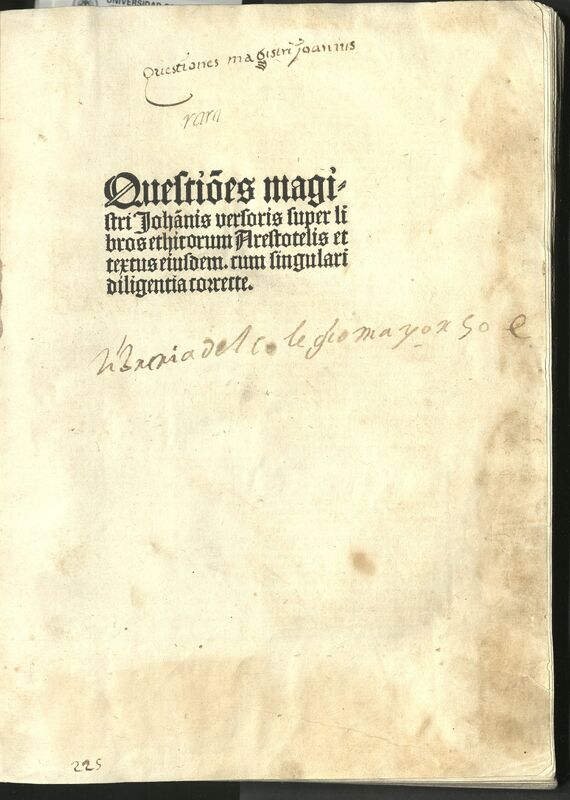 UNIVERSIDAD
Questiones magistri Joannis
rara
Questiões magi-
stri Johãnis versoris super li
bros ethicorum Arestotelis et
textus eiusdem. cum singulari
diligentia correcte.
libreria del colegio mayor
225